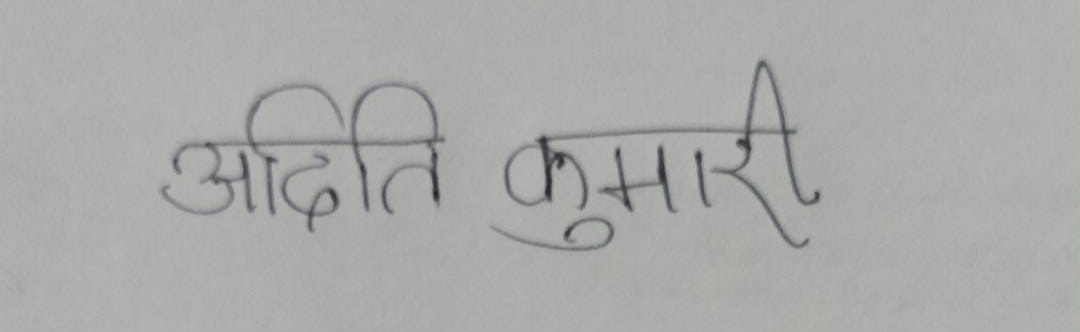 अदिति कुमारी